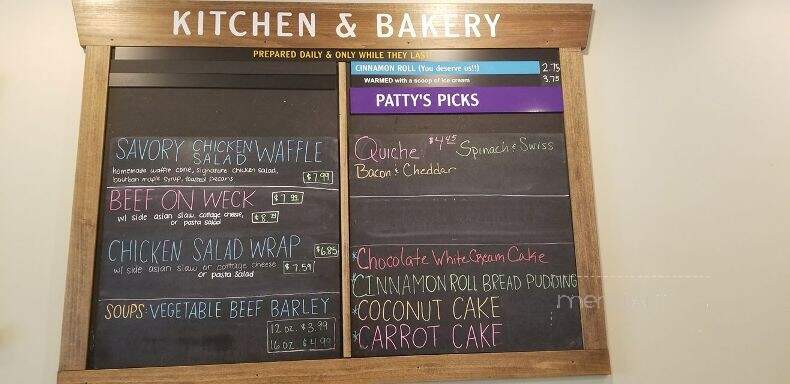 KITCHEN & BAKERY
PREPARED DAILY & ONLY WHILE THEY LAST
SAVORY CHICKEN SALAD WAFFLE
homemade waffle cone, signature chicken salad,
bourbon maple syrup, toasted pecans $7.99
BEEF ON WECK $7.99
w/ side asian slaw, cottage cheese,
or pasta salad
CHICKEN SALAD WRAP $6.85
w/ side asian slaw or cottage cheese $7.59
or pasta salad
SOUPS: VEGETABLE BEEF BARLEY
12 oz. $3.99
16 oz. $4.99
CINNAMON ROLL (You deserve us!!) 2.75
WARMED with a scoop of ice cream 3.75
PATTY'S PICKS
Quiche $4.45 Spinach & Swiss
Bacon & Cheddar
*Chocolate White Cream Cake
*CINNAMON ROLL BREAD PUDDING
*COCONUT CAKE
*CARROT CAKE